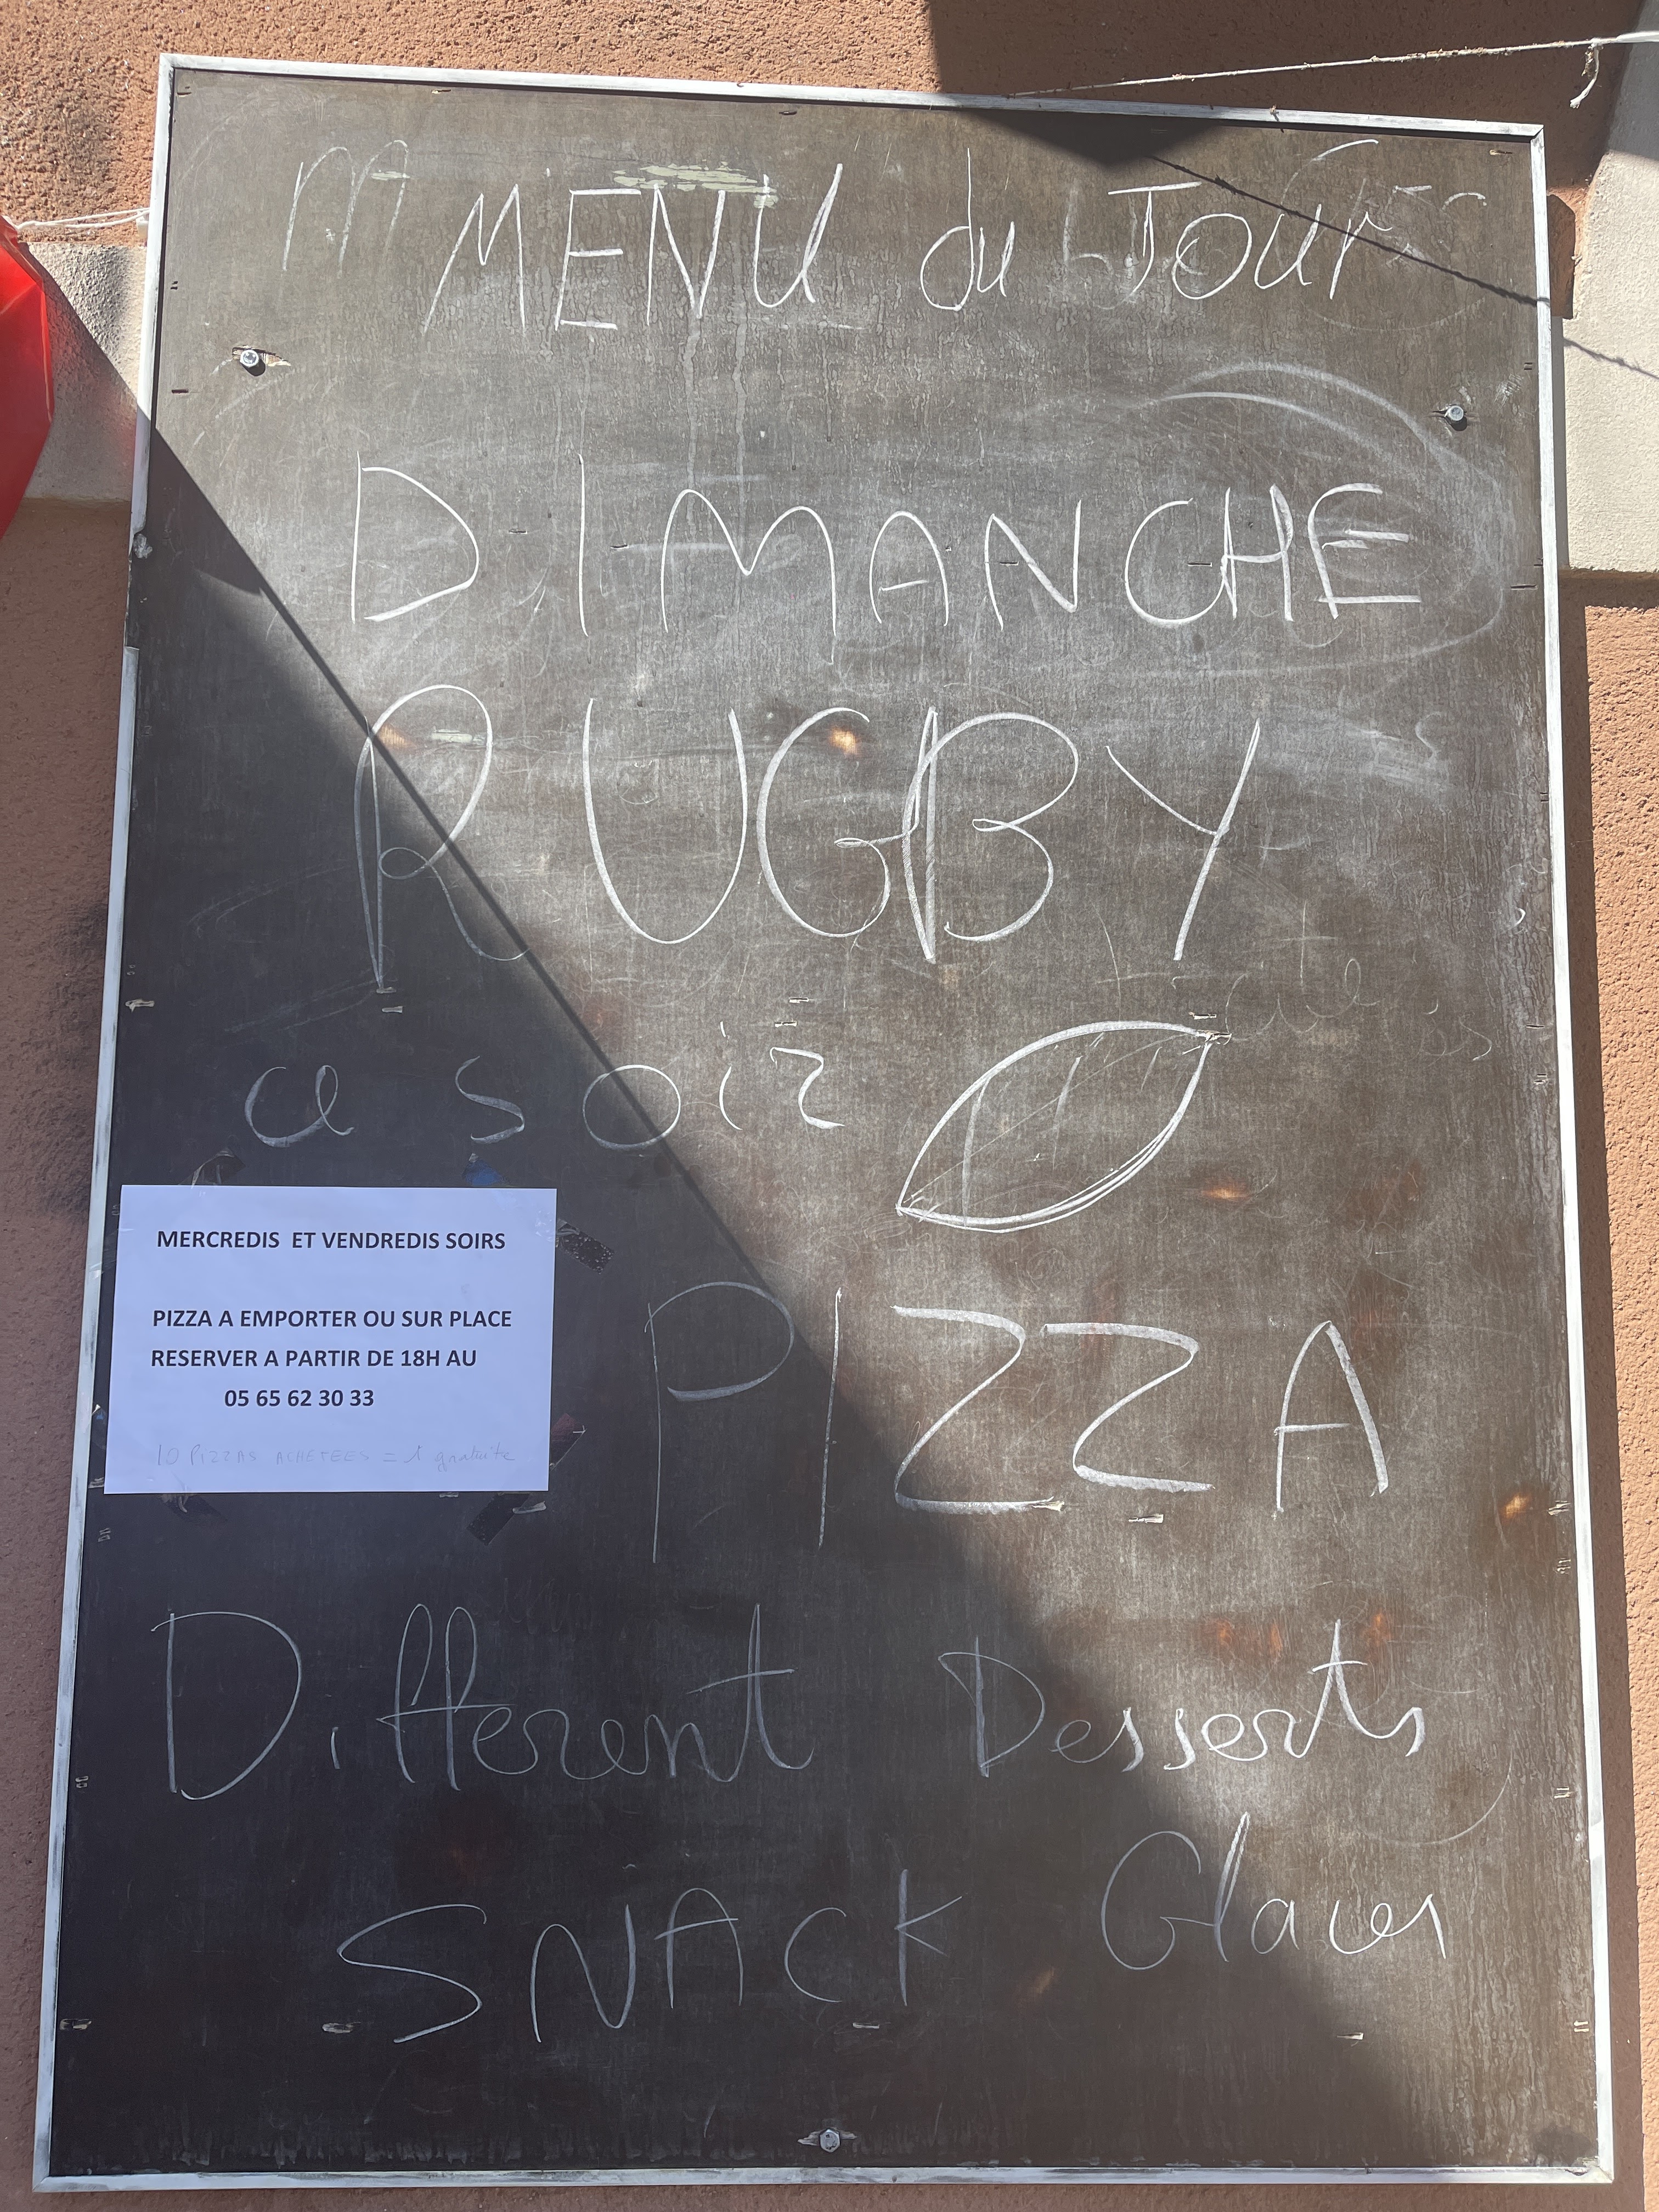 MENU du Jour
DIMANCHE
RUGBY
ce soir
MERCREDIS ET VENDREDIS SOIRS
PIZZA A EMPORTER OU SUR PLACE
RESERVER A PARTIR DE 18H AU
05 65 62 30 33
10 PIZZAS ACHETEES = 1 gratuite
PIZZA
Different Desserts
SNACK Glaces